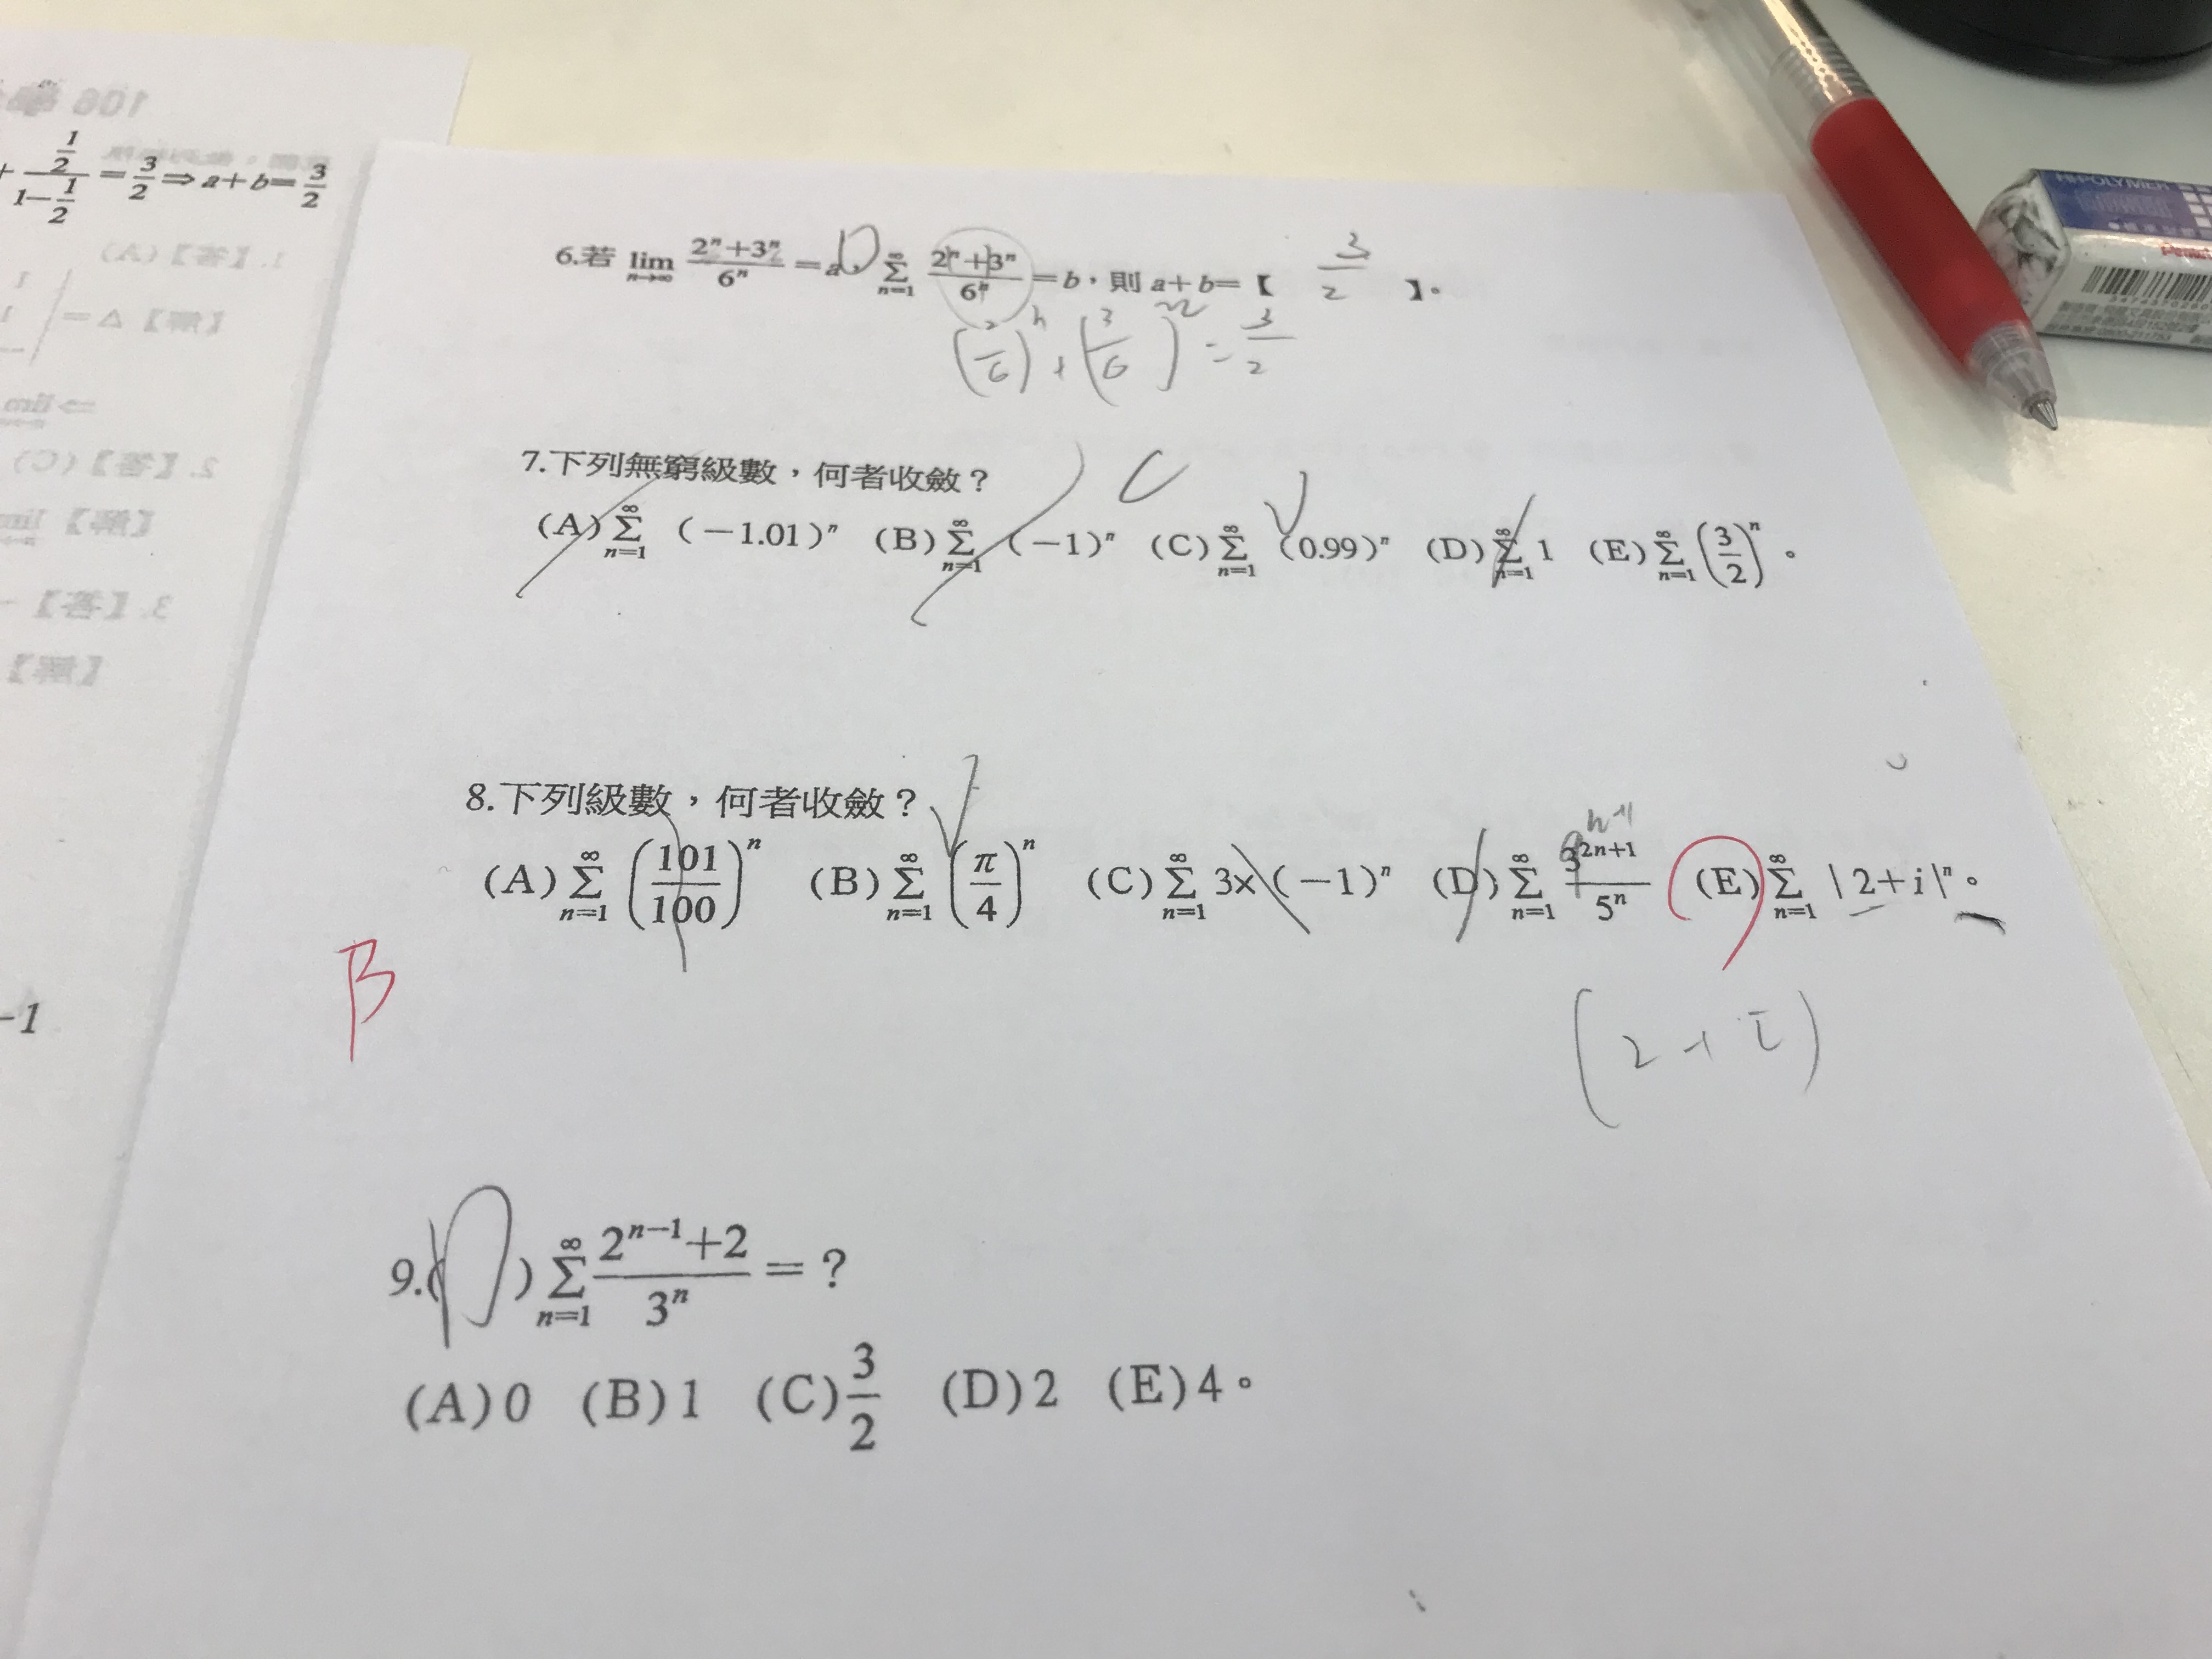 + \frac{\frac{1}{2}}{1-\frac{1}{2}} = \frac{3}{2} ⇒ a+b= \frac{3}{2}
6.若 \lim_{n→∞} \frac{2^n+3^n}{6^n} =a, \sum_{n=1}^{∞} \frac{2^n+3^n}{6^n} =b,則 a+b=【 \frac{3}{2} 】。
(\frac{2}{6})^n + (\frac{3}{6})^n = \frac{3}{2}
7.下列無窮級數,何者收斂? C
(A) \sum_{n=1}^{∞} (-1.01)^n (B) \sum_{n=1}^{∞} (-1)^n (C) \sum_{n=1}^{∞} (0.99)^n (D) \sum_{n=1}^{∞} 1 (E) \sum_{n=1}^{∞} (\frac{3}{2})^n 。
8.下列級數,何者收斂?
(A) \sum_{n=1}^{∞} (\frac{101}{100})^n (B) \sum_{n=1}^{∞} (\frac{π}{4})^n (C) \sum_{n=1}^{∞} 3×(-1)^n (D) \sum_{n=1}^{∞} \frac{3^{2n+1}}{5^n} (E) \sum_{n=1}^{∞} \2+i\^n 。
9^{n+1}
B
(2+i)
-1
9.(D) \sum_{n=1}^{∞} \frac{2^{n-1}+2}{3^n} =?
(A)0 (B)1 (C)\frac{3}{2} (D)2 (E)4。
106
1.【答】(A)
【解】Δ=
⇒lim
2.【答】(C)
【解】lim
3.【答】
【解】
HI-POLYMER
Pentel